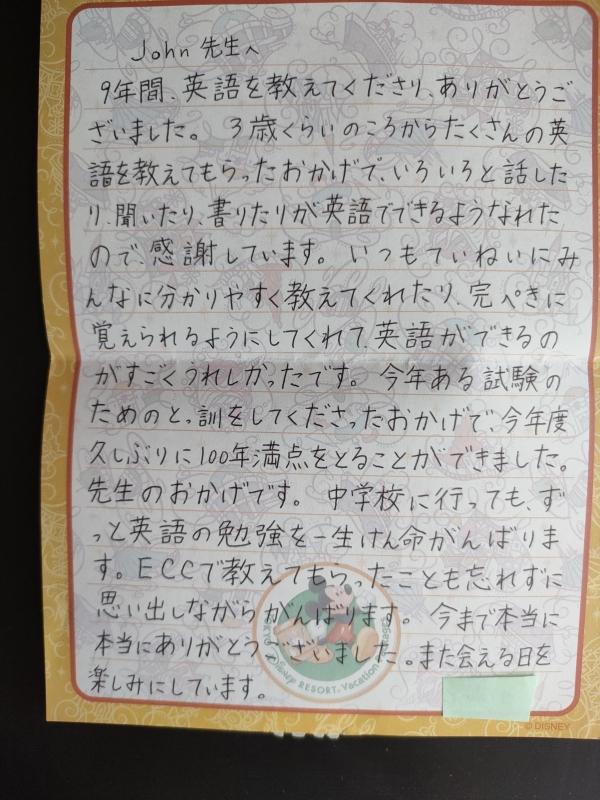 John 先生へ
9年間、英語を教えてくださり、ありがとうご
ざいました。 3歳くらいのころからたくさんの英
語を教えてもらったおかげで、いろいろと話した
り、聞いたり、書りたりが英語でできるようなれた
ので、感謝しています。 いつもていねいにみ
んなに分かりやすく教えてくれたり、完ぺきに
覚えられるようにしてくれて、英語ができるの
がすごくうれしかったです。 今年ある試験の
ためのとっ訓をしてくださったおかげで、今年度
久しぶりに100年満点をとることができました。
先生のおかげです。 中学校に行っても、ず
っと英語の勉強を一生けん命がんばりま
す。ECCで教えてもらったことも忘れずに
思い出しながらがんばります。 今まで本当に
本当にありがとうございました。また会える日を
楽しみにしています。
TOKYO DISNEY RESORT Vacation Package
© DISNEY